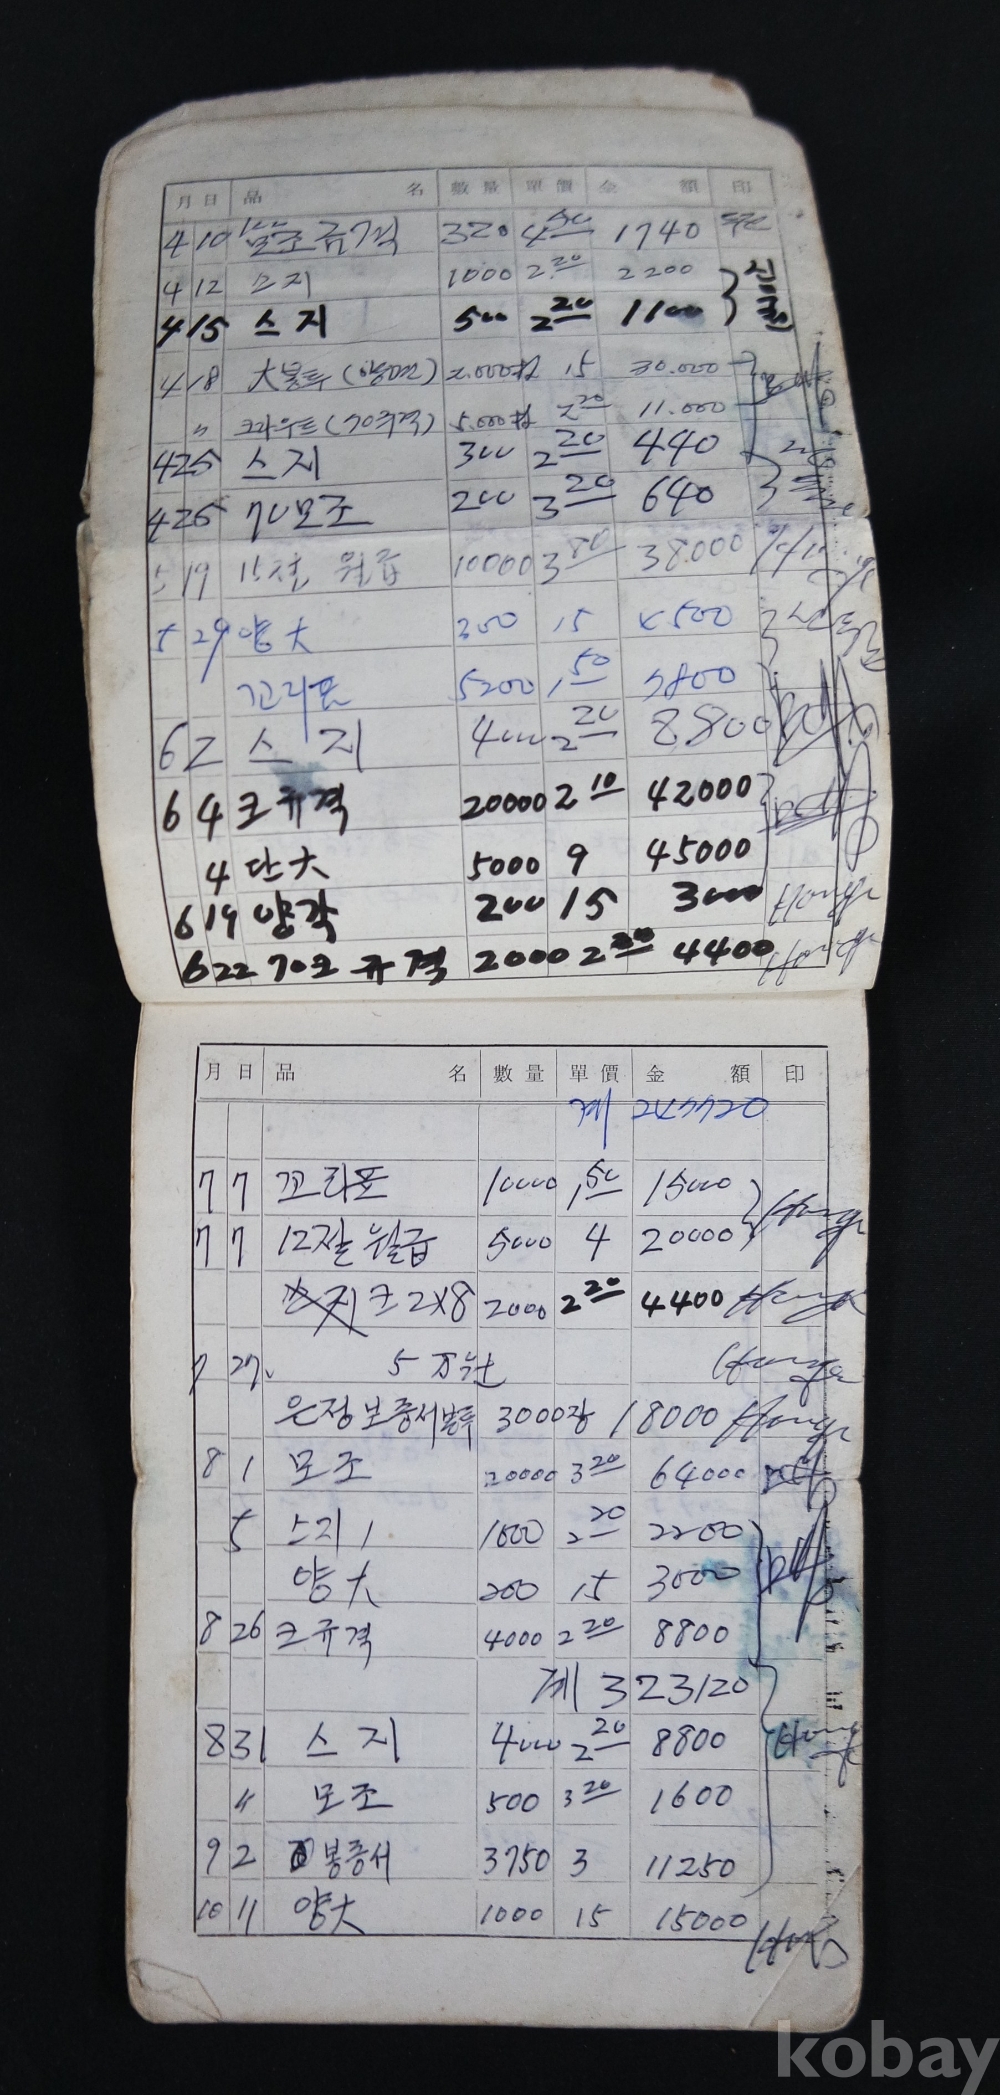 月 日 品 名 數量 單價 金 額 印
4 10 규격 320 4 50 1740
4 12 스지 1000 2 20 2200
4 15 스지 500 2 20 1100
4 18 大봉투 (양면) 2.000枚 15 30.000
〃 크라우트(70규격) 5.000枚 2 20 11.000
4 25 스지 300 2 20 440
4 25 70모조 200 3 20 640
5 19 월급 10000 3 80 38.000
5 29 양大 300 15 4500
꼬리표 5200 1 50 7800
6 2 스 지 4000 2 20 8.800
6 4 크규격 20000 2 10 42000
4 단大 5000 9 45000
6 19 양각 200 15 3000
6 22 70모 규격 2000 2 20 4400
月 日 品 名 數量 單價 金 額 印
계
7 7 꼬리표 10000 1 50 15000
7 7 12절 월급 5000 4 20000
스지 크 2X8 2000 2 20 4400
7 27. 5万원
은정보증서봉투 3000장 18000
8 1 모조 20000 3 20 64000
5 스지 1000 2 20 2200
양大 200 15 3000
8 26 크규격 4000 2 20 8800
계 323120
8 31 스 지 4000 2 20 8800
〃 모조 500 3 20 1600
9 2 봉증서 3750 3 11250
10 11 양大 1000 15 15000
kobay